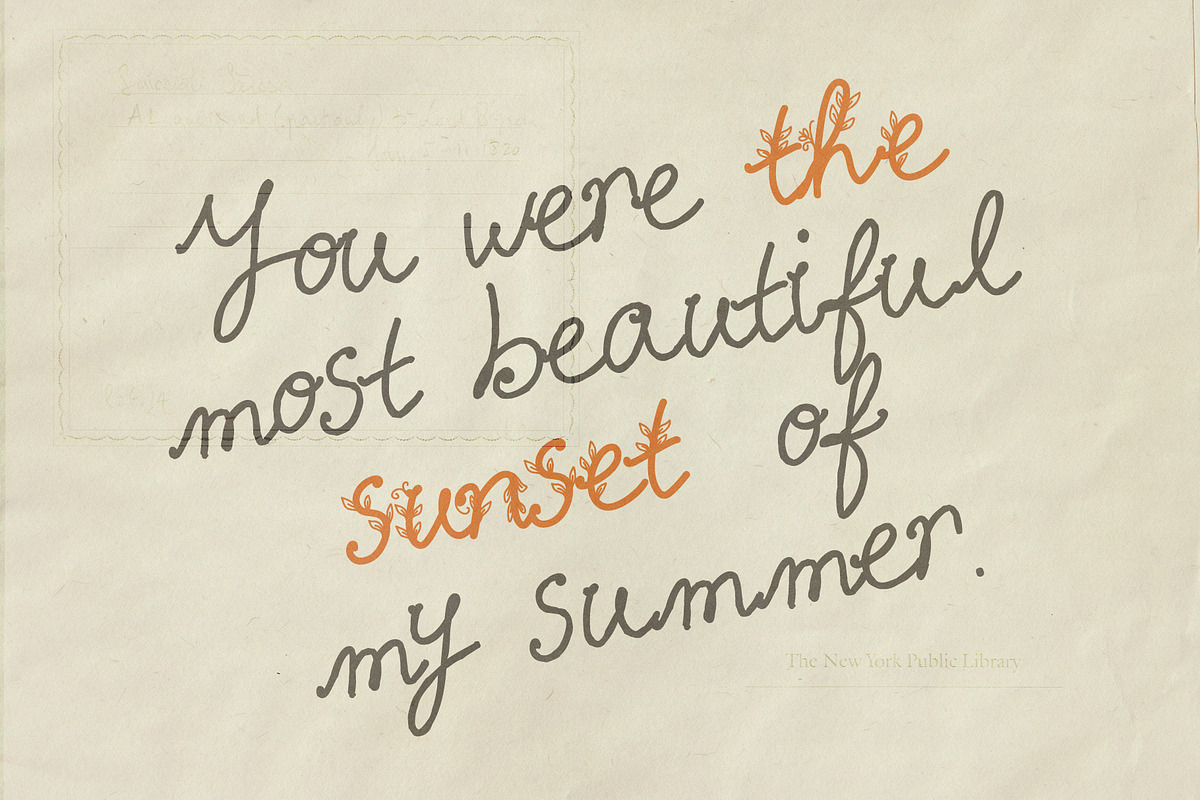 You were the
most beautiful
sunset of
my summer.
The New York Public Library